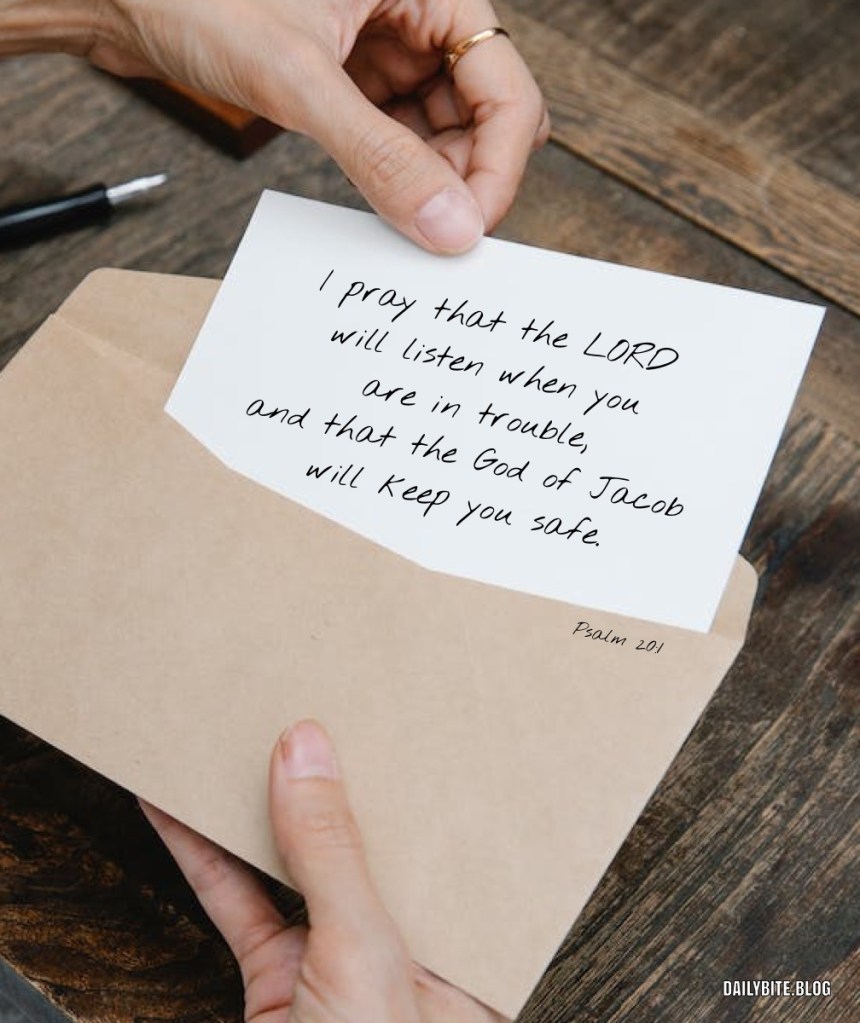 I pray that the LORD
will listen when you
are in trouble,
and that the God of Jacob
will keep you safe.
Psalm 20:1
DAILYBITE.BLOG